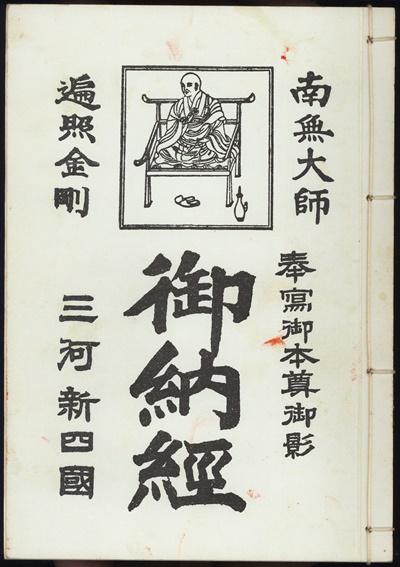 南無大師
遍照金剛
奉寫御本尊御影
御納経
三河新四國